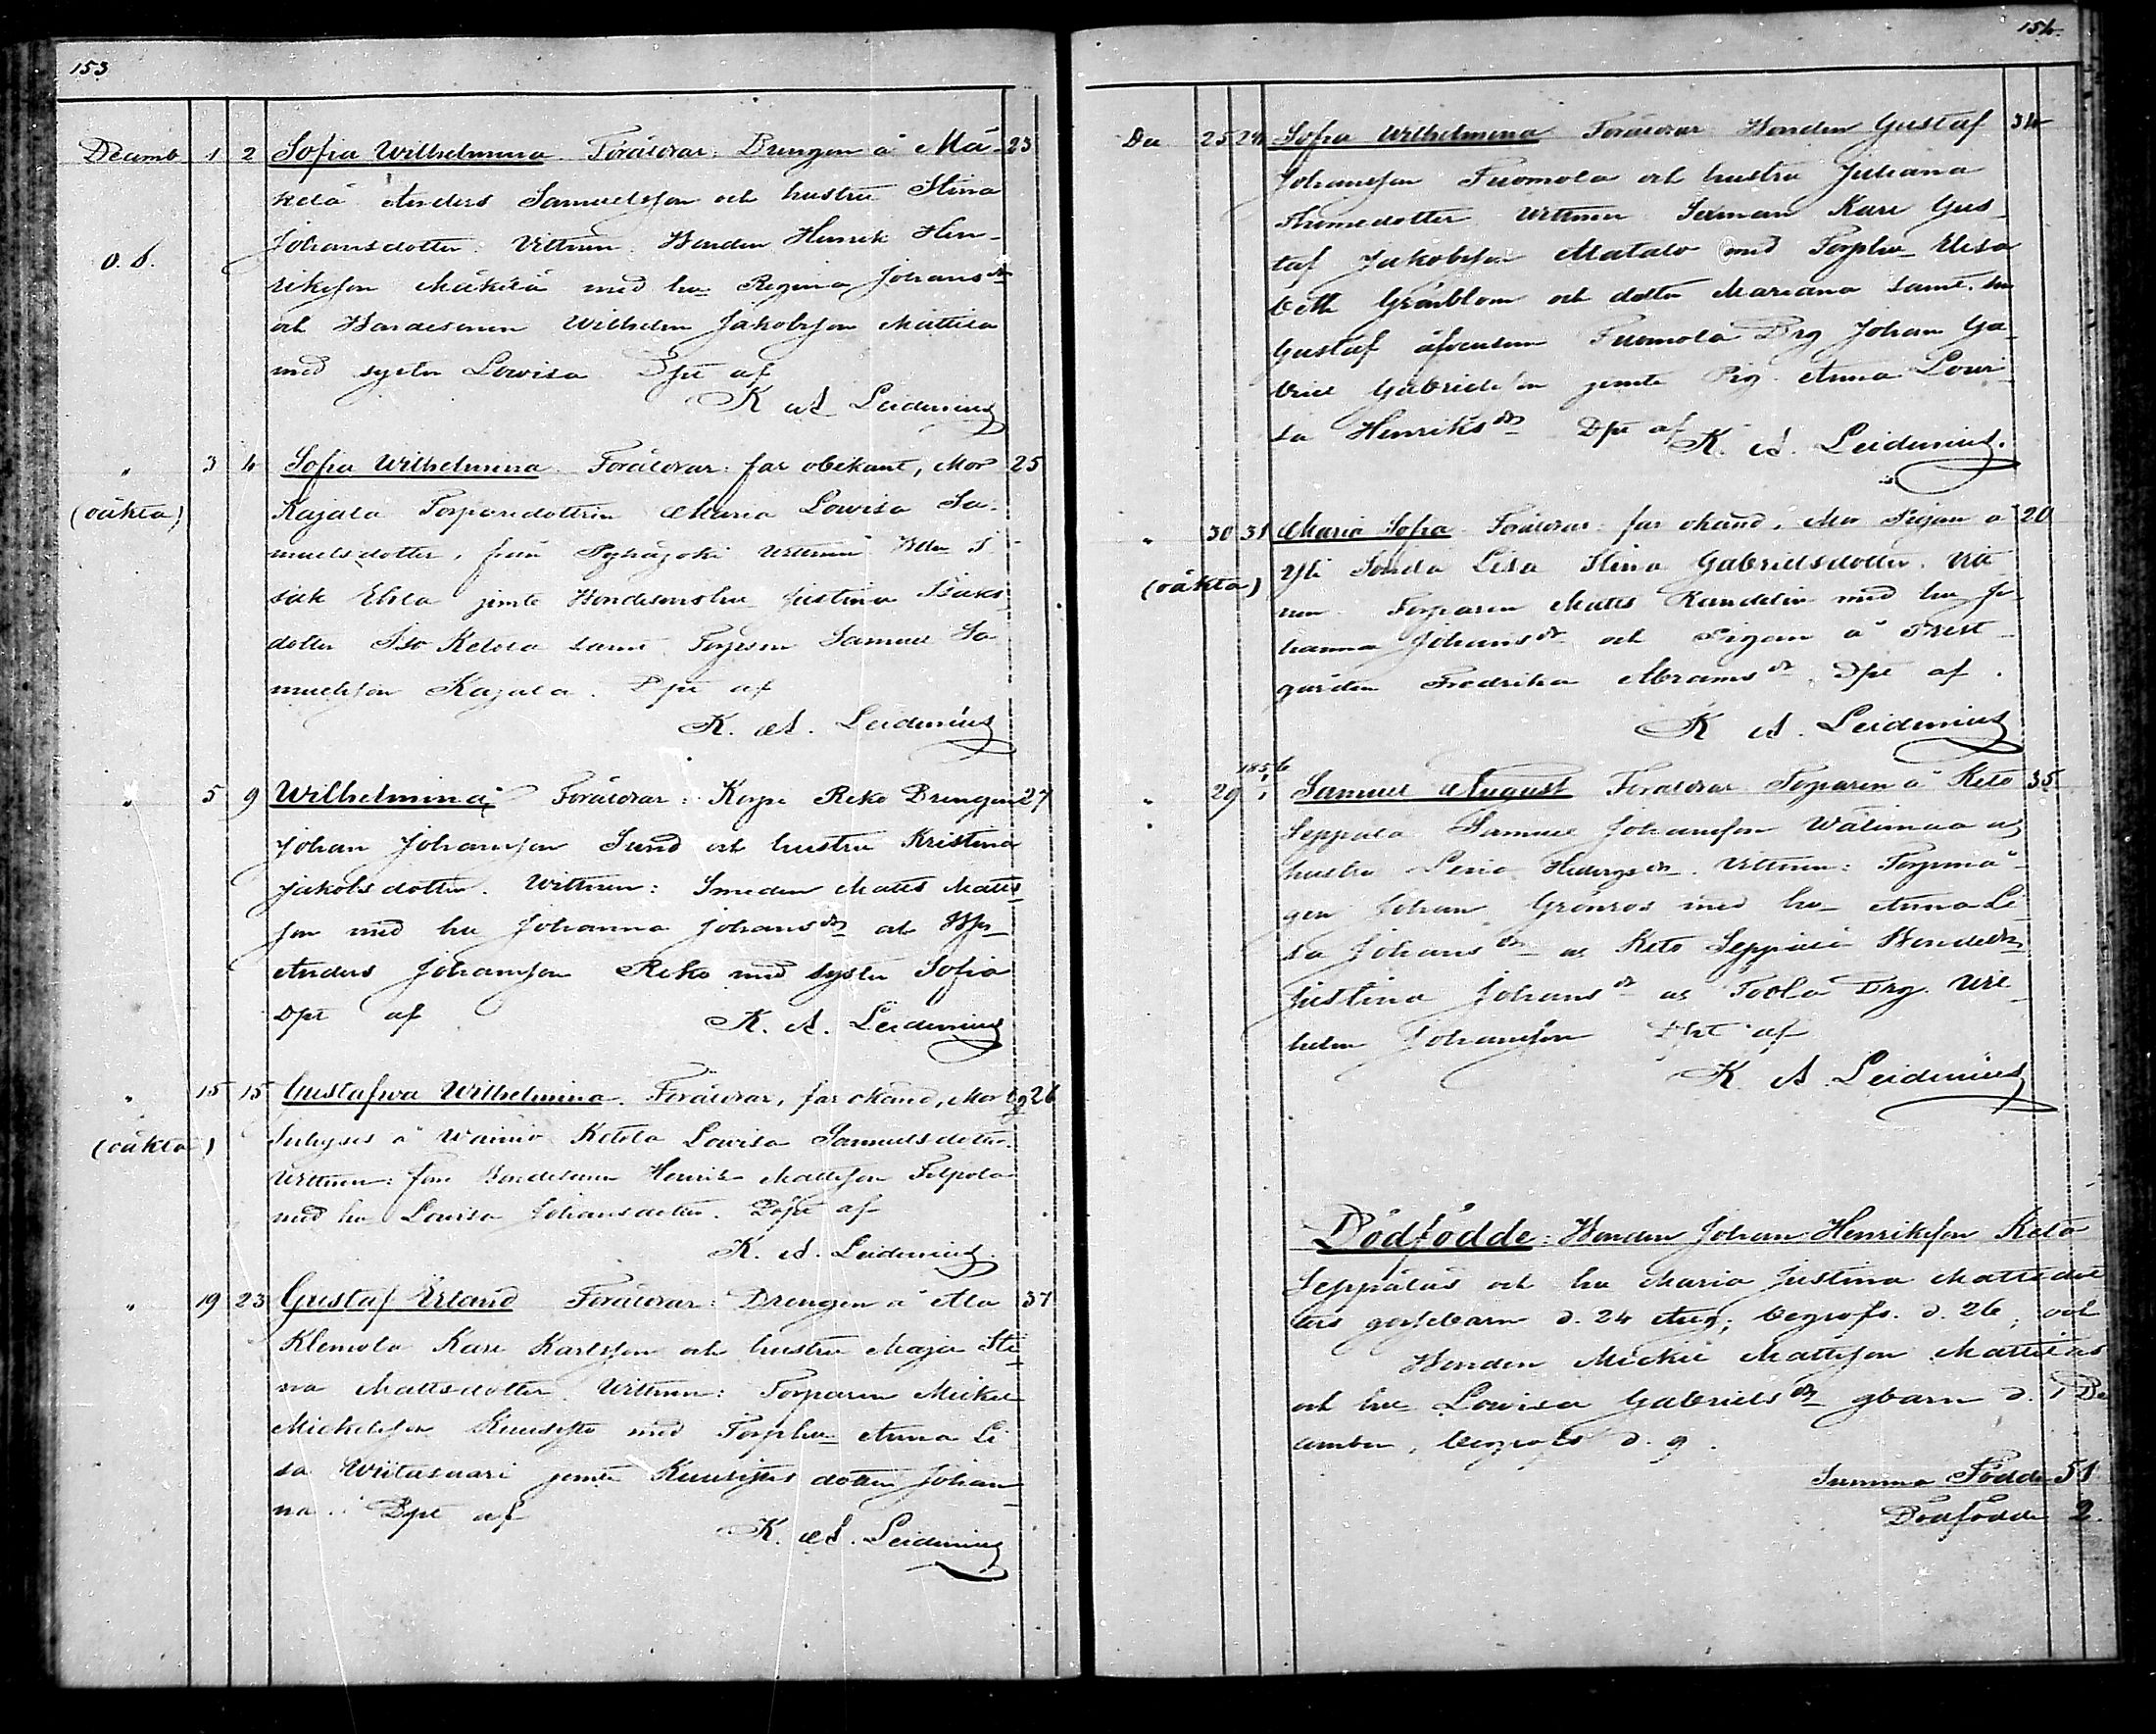 153
Decemb 1 2 Sofia Wilhelmina. Föräldrar: Drengen å Mä- 23
kelä Anders Samuelsson och hustru Stina
Johansdotter. Vittnen. Bonden Henrik Hen-
riksson Mäkelä med hu Regina Johansdr
och Bondesonen Wilhelm Jakobsson Mattila
med syster Lowisa Dpt af
K A Leidenius
" 3 4 Sofia Wilhelmina. Föräldrar: far obekant, Mor 25
(oäkta) Kajala Torparedottren Maria Lowisa Sa-
muelsdotter, från Pyhäjoki Vittnen
sak Ehla jemte Bondesonshu Justina Isaks
dotter Iso Ketola samt Torpson Samuel Sa
muelsson Kajala. Dpt af
K. A. Leidenius
" 5 9 Wilhelmina Föräldrar: Korpi Reko Drengen 27
Johan Johansson Sund och hustru Kristina
Jakobsdotter. Wittnen: Smeden Matts Matts
son med hu Johanna Johansdr och
Anders Johansson Reko med syster Sofia
Dpt af K. A. Leidenius
" 15 15 Gustafwa Wilhelmina. Föräldrar, far okänd, Mor 26
(oäkta) Inhyses å Wainio Ketola Lovisa Samuelsdotter.
Vittnen: Bondesonen Henrik Mattsson
med hu Lovisa Johansdotter. Döpt af
K. A. Leidenius.
" 19 23 Gustaf Erland Föräldrar: Drengen å Ala 37
Klemola Karl Karlsson och hustru Maja Sti
na Mattsdotter. Vittnen: Torparen Mickel
Mickelsson Kuusisto med Torphu Anna Li
sa Wiitasaari jemte Kuusistos dotter Johan
na. Dpt af
K. A. Leidenius
154.
De 25 24 Sofia Wilhelmina Föräldrar Bonden Gustaf 34
Johansson Tuomola och hustru Juliana
Thomedotter Vittnen Karl Gus
taf Jakobsson Matalo med Torphu Elisa
beth Grönblom och dotter Mariana samt
Gustaf äfvensom Tuomola Drg Johan Ga
briel Gabrielsson jemte Pig. Anna Lovi
sa Henriksdr Dpt af K. A. Leidenius.
" 30 31 Maria Sofia Föräldrar: far okänd, Mor Pigan å 20
(oäkta) Yli Lisa Stina Gabrielsdotter. Vitt
nen Torparen Matts Randelin med hu Jo
hanna Johansdr och Pigan å Prest
gården Fredrika Abramsdr Dpt af.
K A. Leidenius
" 29 1856 1/1 Samuel August Föräldrar Torparen å Keto 35
Seppälä Samuel Johansson Wälimaa och
hustru Vittnen: Torpmå-
gen Johan Grönros med hu Anna Li
sa Johansdr o Keto Seppälä Bondedr
Justina Johansdr o Drg Wil
helm Johansson Dpt af
K. A. Leidenius
Dödfödde: Bonden Johan Henriksson Keto
Seppäläs och hu Maria Justina Mattsdot
ters gossebarn d. 24 Aug; begrofs. d. 26, och
Bonden Mickel Mattsson Mattilas
och hu Lowisa Gabrielsdr gbarn d. 1 De
cember, begrofs d. 9.
Summa Födde 51
Dödfödde 2.